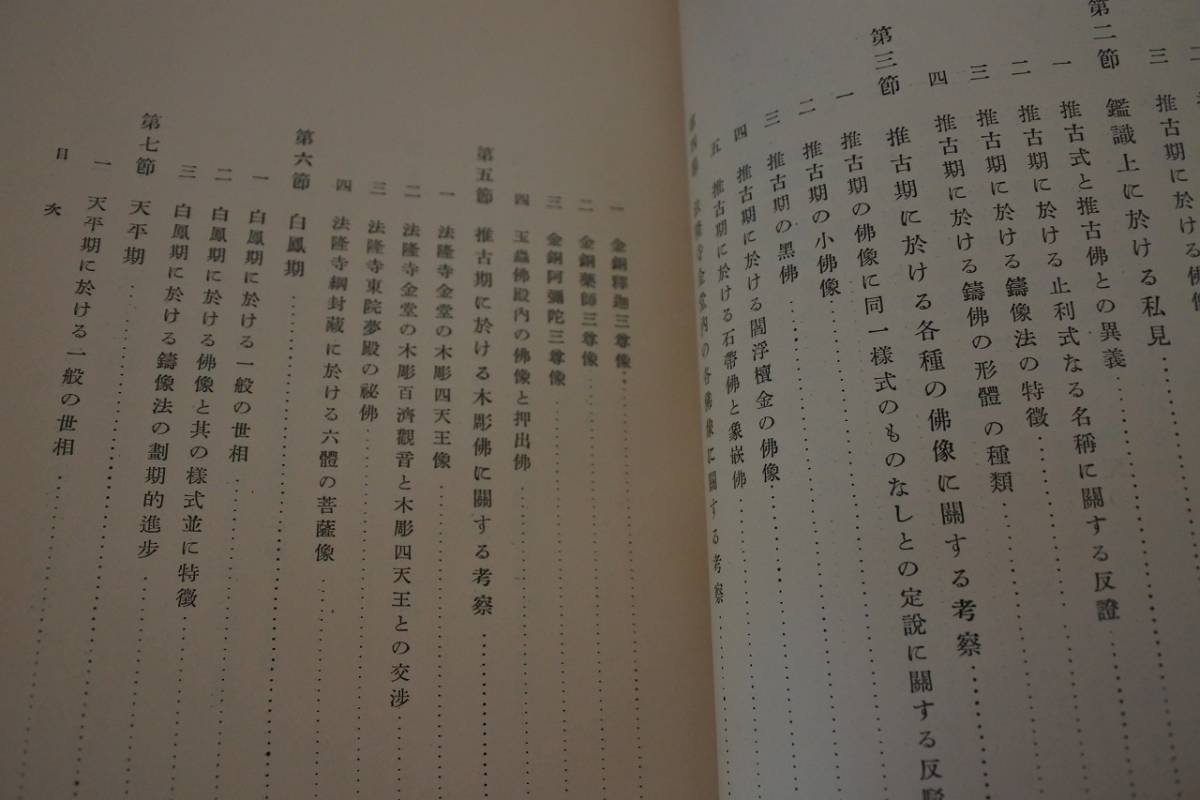 三 推古期に於ける佛像
第二節 鑑識上に於ける私見
一 推古式と推古佛との異義
二 推古期に於ける止利式なる名稱に關する反證
三 推古期に於ける鑄像法の特徴
四 推古期に於ける鑄佛の形體の種類
第三節 推古期に於ける各種の佛像に關する考察
一 推古期の佛像に同一樣式のものなしとの定説に關する反駁
二 推古期の小佛像
三 推古期の黑佛
四 推古期に於ける閻浮檀金の佛像
五 推古期に於ける石帶佛と象嵌佛
第四節 法隆寺金堂内の各佛像に關する考察
一 金銅釋迦三尊像
二 金銅藥師三尊像
三 金銅阿彌陀三尊像
四 玉蟲佛殿内の佛像と押出佛
第五節 推古期に於ける木彫佛に關する考察
一 法隆寺金堂の木彫四天王像
二 法隆寺金堂の木彫百濟觀音と木彫四天王との交渉
三 法隆寺東院夢殿の祕佛
四 法隆寺綱封藏に於ける六體の菩薩像
第六節 白鳳期
一 白鳳期に於ける一般の世相
二 白鳳期に於ける佛像と其の樣式並に特徴
三 白鳳期に於ける鑄像法の劃期的進步
第七節 天平期
一 天平期に於ける一般の世相
目次